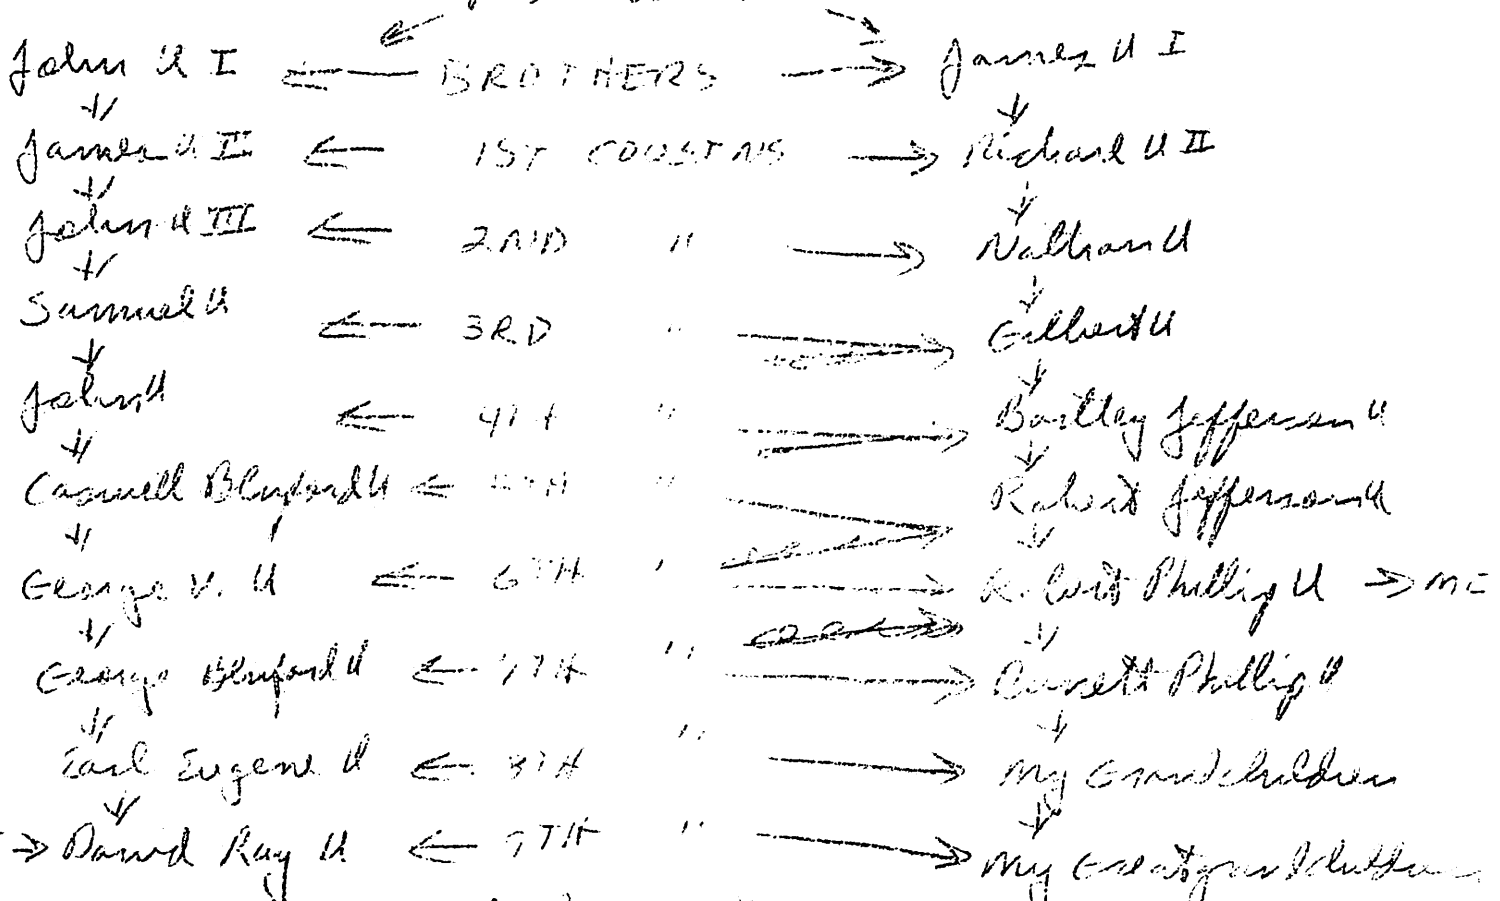 John U I ← BROTHERS → James U I
James U II ← 1ST COUSINS → Richard U II
John U III ← 2ND " → Nathan U
Samuel U ← 3RD " → Gilbert U
John U ← 4TH " → Bartley Jefferson U
Caswell Bluford U ← " → Robert Jefferson U
George V. U ← 6TH " → Robert Phillip U → ME
George Bluford U ← 7TH " → Phillip U
Earl Eugene U ← 8TH " → My Grandchildren
→ David Ray U ← 9TH " → My Great grandchildren